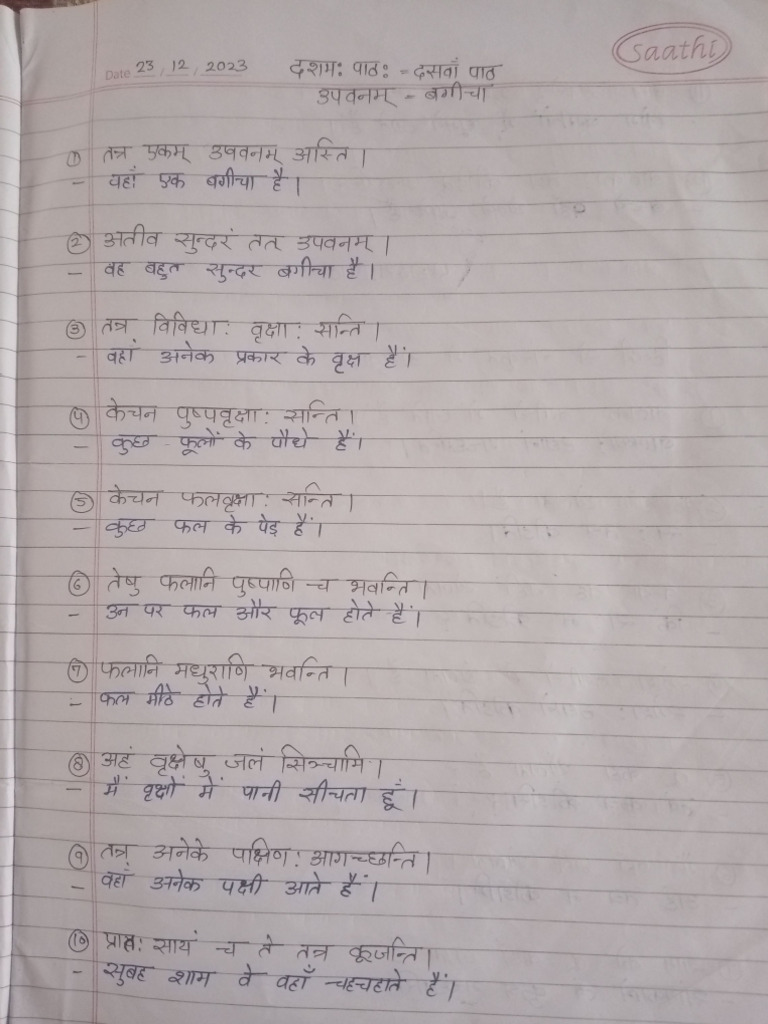 Saathi
Date 23, 12, 2023 दशमः पाठः - दसवाँ पाठ
उपवनम् - बगीचा
① तत्र एकम् उपवनम् अस्ति।
- वहाँ एक बगीचा है।
② अतीव सुन्दरं तत् उपवनम्।
- वह बहुत सुन्दर बगीचा है।
③ तत्र विविधाः वृक्षाः सन्ति।
- वहाँ अनेक प्रकार के वृक्ष हैं।
④ केचन पुष्पवृक्षाः सन्ति।
- कुछ फूलों के पौधे हैं।
⑤ केचन फलवृक्षाः सन्ति।
- कुछ फल के पेड़ हैं।
⑥ तेषु फलानि पुष्पाणि च भवन्ति।
- उन पर फल और फूल होते हैं।
⑦ फलानि मधुराणि भवन्ति।
- फल मीठे होते हैं।
⑧ अहं वृक्षेषु जलं सिञ्चामि।
- मैं वृक्षों में पानी सींचता हूँ।
⑨ तत्र अनेके पक्षिणः आगच्छन्ति।
- वहाँ अनेक पक्षी आते हैं।
⑩ प्रातः सायं च ते तत्र कूजन्ति।
- सुबह शाम वे वहाँ चहचहाते हैं।